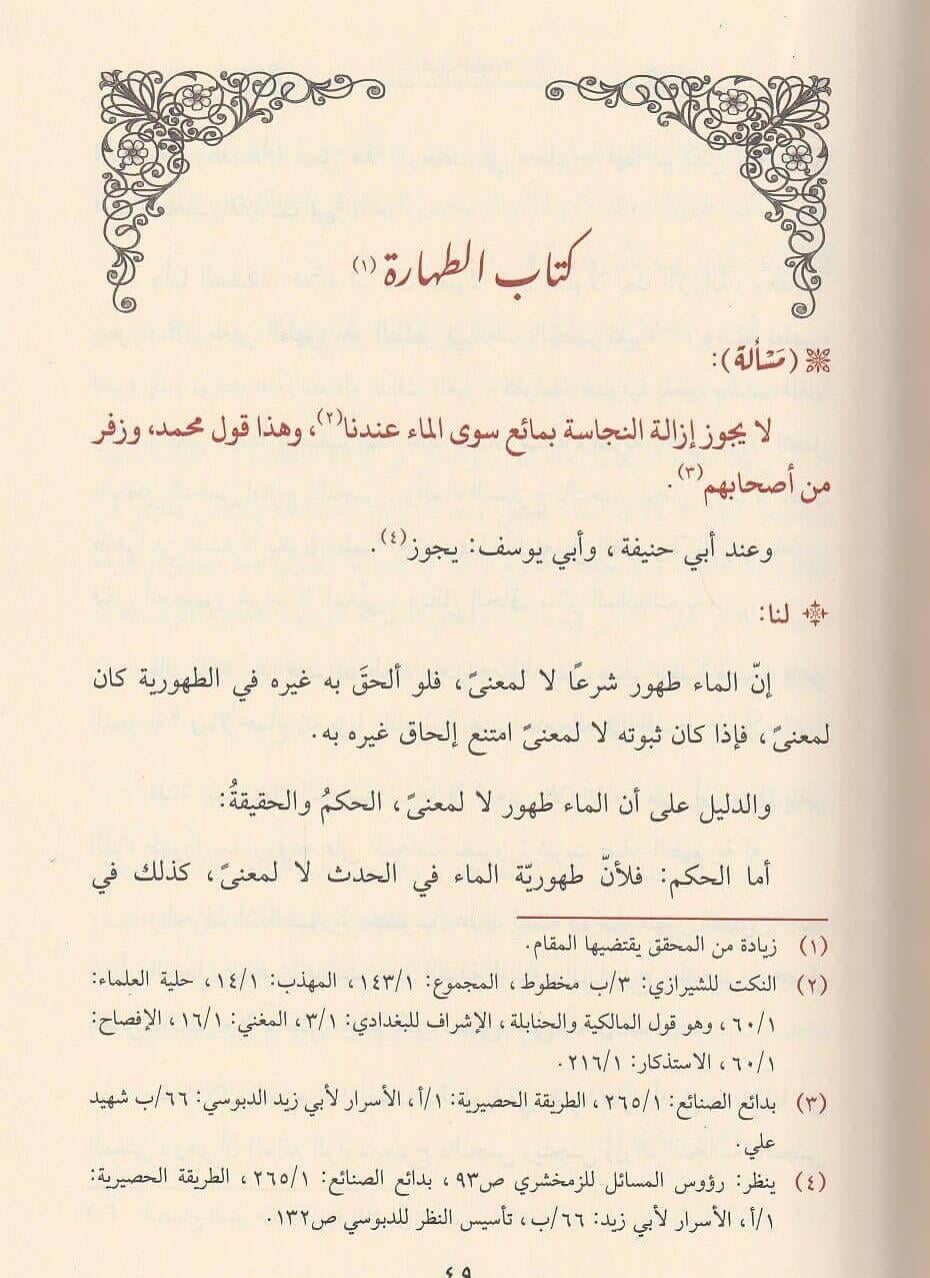 كتاب الطهارة (١)
(مَسْألة):
لا يجوز إزالة النجاسة بمائع سوى الماء عندنا(٢)، وهذا قول محمد، وزفر
من أصحابهم(٣).
وعند أبي حنيفة، وأبي يوسف: يجوز(٤).
لنا:
إنّ الماء طهور شرعًا لا لمعنىً، فلو ألحقَ به غيره في الطهورية كان
لمعنىً، فإذا كان ثبوته لا لمعنىً امتنع إلحاق غيره به.
والدليل على أن الماء طهور لا لمعنىً، الحكمُ والحقيقةُ:
أما الحكم: فلأنّ طهوريّة الماء في الحدث لا لمعنىً، كذلك في
(١) زيادة من المحقق يقتضيها المقام.
(٢) النكت للشيرازي: ٣/ب مخطوط، المجموع: ١٤٣/١، المهذب: ١٤/١، حلية العلماء:
٦٠/١، وهو قول المالكية والحنابلة، الإشراف للبغدادي: ٣/١، المغني: ١٦/١، الإفصاح:
٦٠/١، الاستذكار: ٢١٦/١.
(٣) بدائع الصنائع: ٢٦٥/١، الطريقة الحصيرية: ١/أ، الأسرار لأبي زيد الدبوسي: ٦٦/ب شهيد
علي.
(٤) ينظر: رؤوس المسائل للزمخشري ص٩٣، بدائع الصنائع: ٢٦٥/١، الطريقة الحصيرية:
١/أ، الأسرار لأبي زيد: ٦٦/ب، تأسيس النظر للدبوسي ص١٣٢.
٤٩